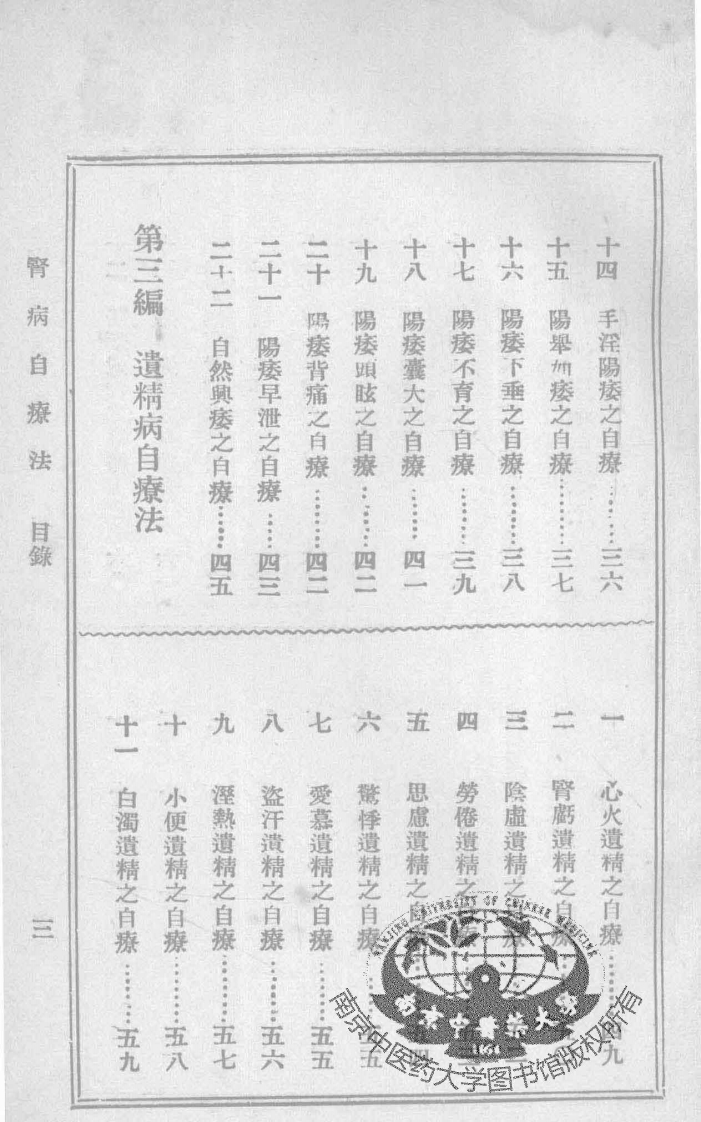 十四 手淫陽痿之自療……三六
十五 陽舉如痿之自療……三七
十六 陽痿下垂之自療……三八
十七 陽痿不育之自療……三九
十八 陽痿囊大之自療……四一
十九 陽痿頭眩之自療……四二
二十 陽痿背痛之自療……四二
二十一 陽痿早泄之自療……四三
二十二 自然興痿之自療……四五
第三編 遺精病自療法
一 心火遺精之自療……九
二 腎虧遺精之自療
三 陰虛遺精之療
四 勞倦遺精
五 思慮遺精之自
六 驚悸遺精之自療……五
七 愛慕遺精之自療……五五
八 盜汗遺精之自療……五六
九 溼熱遺精之自療……五七
十 小便遺精之自療……五八
十一 白濁遺精之自療……五九
腎病自療法 目錄
三
NANJING UNIVERSITY OF CHINESE MEDICINE
南京中醫藥大學
1954
南京中医药大学图书馆版权所有